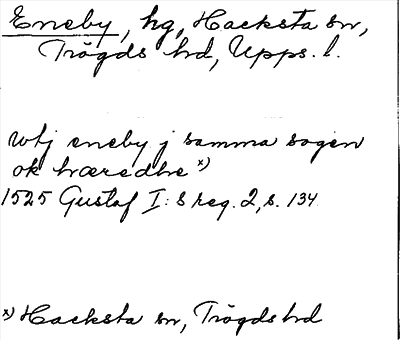 Eneby, hg, Hacksta sn,
Trögds hd, Upps. l.
wtj eneby j samma sogen
ok hæredhe x)
1525 Gustaf I:s reg. 2, s. 134
x) Hacksta sn, Trögds hd